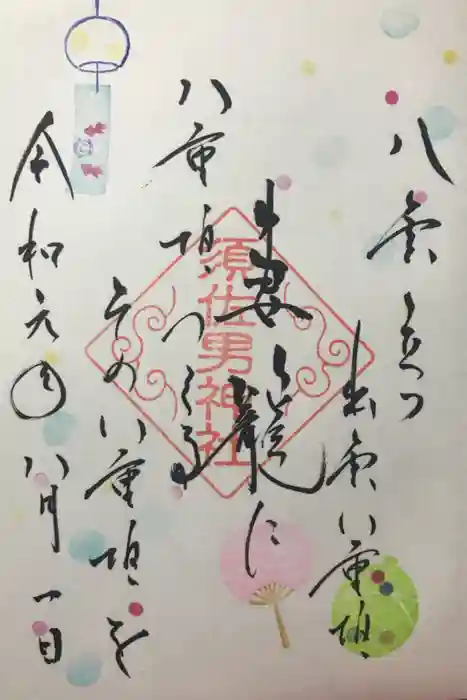 八雲立つ
出雲八重垣
妻籠に
八重垣つくる
その八重垣を
令和元年八月一日
須佐男神社